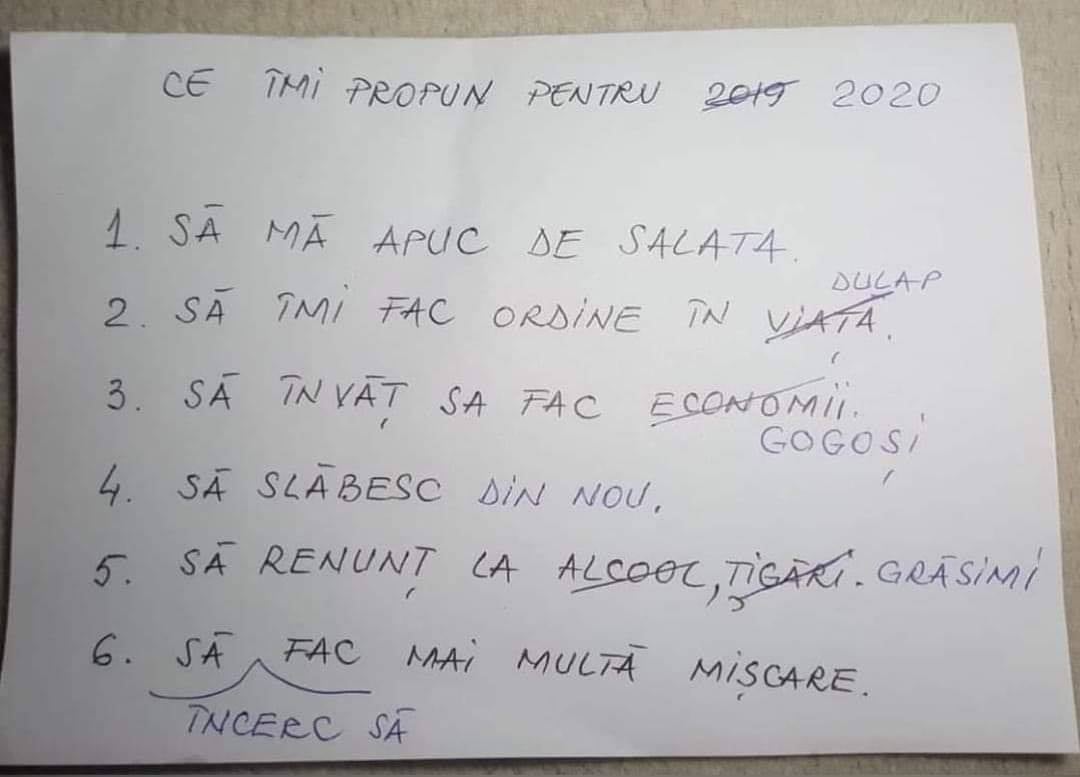 CE ÎMI PROPUN PENTRU 2019 2020
1. SĂ MĂ APUC DE SALATA.
DULAP
2. SĂ ÎMI FAC ORDINE ÎN VIAȚA.
3. SĂ ÎNVĂȚ SA FAC ECONOMII.
GOGOȘI
4. SĂ SLĂBESC DIN NOU.
5. SĂ RENUNȚ LA ALCOOL, ȚIGĂRI. GRĂSIMI
6. SĂ FAC MAI MULTĂ MIȘCARE.
ÎNCERC SĂ